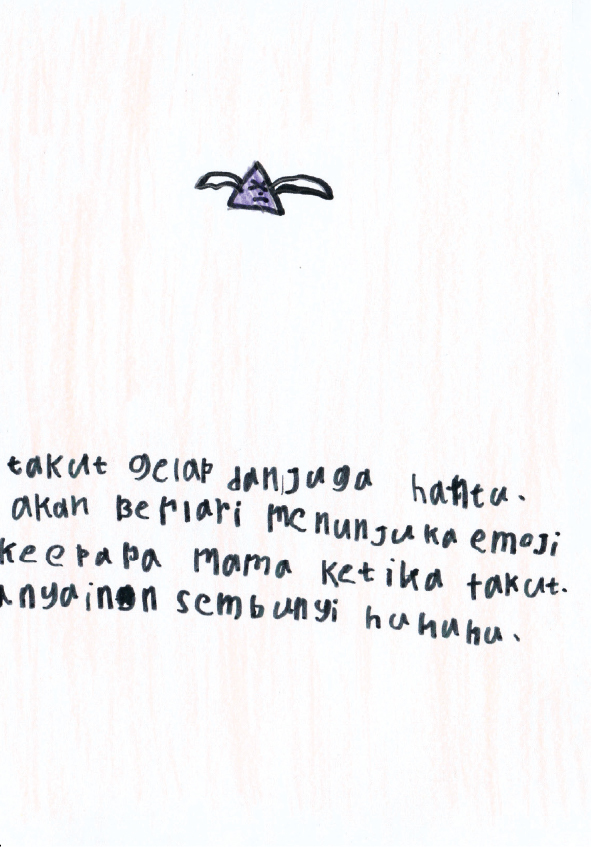 takut gelap dan juga hantu.
akan Berlari menunjuka emoji
keepapa mama ketika takut.
sembunyi huhuhu.